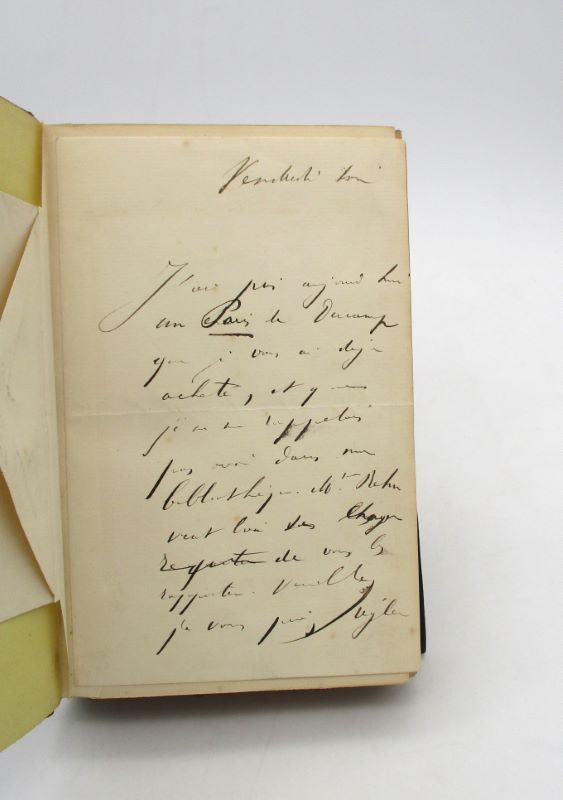 Vendredi soir
J'ai pris aujourd'hui
un Paris de Ducamp
que je vous ai déjà
acheté, et que
je ne me rappelais
pas avoir dans ma
bibliothèque. Mr
veut bien se charger
de vous le
rapporter. Veuillez
je vous prie, régler